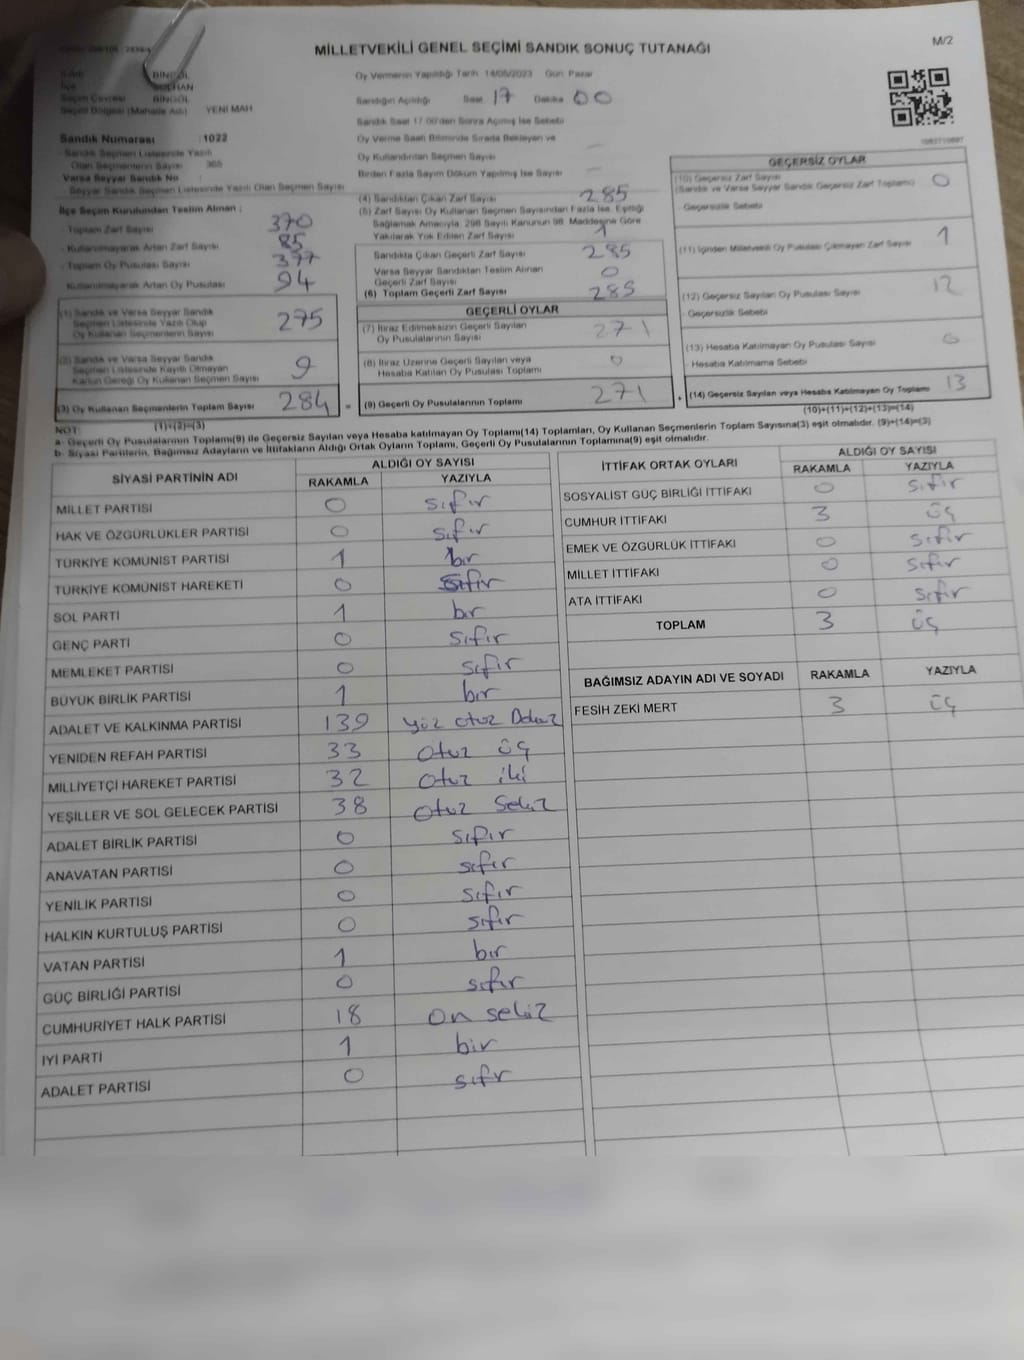 MİLLETVEKİLİ GENEL SEÇİMİ SANDIK SONUÇ TUTANAĞI
M/2
BİNGÖL
BİNGÖL
YENİ MAH
Oy Vermenin Yapıldığı Tarih 14/05/2023 Gün Pazar
Sandığın Açıldığı Saat 17 Dakika 00
Sandık Saat 17.00'den Sonra Açılmış İse Sebebi
Oy Verme Saati Bitiminde Sırada Bekleyen ve
Oy Kullandırılan Seçmen Sayısı
Birden Fazla Sayım Döküm Yapılmış İse Sayısı
Sandık Numarası : 1022
Sandık Seçmen Listesinde Yazılı
Olan Seçmenlerin Sayısı 365
Varsa Seyyar Sandık No
Seyyar Sandık Seçmen Listesinde Yazılı Olan Seçmen Sayısı
İlçe Seçim Kurulundan Teslim Alınan ;
Toplam Zarf Sayısı 370
Kullanılmayarak Artan Zarf Sayısı 85
Toplam Oy Pusulası Sayısı
Kullanılmayarak Artan Oy Pusulası 94
(1) Sandık ve Varsa Seyyar Sandık
Seçmen Listesinde Yazılı Olup
Oy Kullanan Seçmenlerin Sayısı 275
(2) Sandık ve Varsa Seyyar Sandık
Seçmen Listesinde Kayıtlı Olmayan
Kanun Gereği Oy Kullanan Seçmen Sayısı 9
(3) Oy Kullanan Seçmenlerin Toplam Sayısı 284
(1)+(2)=(3)
(4) Sandıktan Çıkan Zarf Sayısı 285
(5) Zarf Sayısı Oy Kullanan Seçmen Sayısından Fazla İse, Eşitliği
Sağlamak Amacıyla, 298 Sayılı Kanunun 98. Maddesine Göre
Yakılarak Yok Edilen Zarf Sayısı 1
Sandıkta Çıkan Geçerli Zarf Sayısı 285
Varsa Seyyar Sandıktan Teslim Alınan
Geçerli Zarf Sayısı 0
(6) Toplam Geçerli Zarf Sayısı 285
GEÇERLİ OYLAR
(7) İtiraz Edilmeksizin Geçerli Sayılan
Oy Pusulalarının Sayısı 271
(8) İtiraz Üzerine Geçerli Sayılan veya
Hesaba Katılan Oy Pusulası Toplamı 0
= (9) Geçerli Oy Pusulalarının Toplamı 271
GEÇERSİZ OYLAR
(10) Geçersiz Zarf Sayısı
(Sandık ve Varsa Seyyar Sandık Geçersiz Zarf Toplamı) 0
Geçersizlik Sebebi
(11) İçinden Milletvekili Oy Pusulası Çıkmayan Zarf Sayısı 1
(12) Geçersiz Sayılan Oy Pusulası Sayısı 12
Geçersizlik Sebebi
(13) Hesaba Katılmayan Oy Pusulası Sayısı 0
Hesaba Katılmama Sebebi
+ (14) Geçersiz Sayılan veya Hesaba Katılmayan Oy Toplamı 13
(10)+(11)+(12)+(13)=(14)
NOT:
a- Geçerli Oy Pusulalarının Toplamı(9) ile Geçersiz Sayılan veya Hesaba katılmayan Oy Toplamı(14) Toplamları, Oy Kullanan Seçmenlerin Toplam Sayısına(3) eşit olmalıdır. (9)+(14)=(3)
b- Siyasi Partilerin, Bağımsız Adayların ve İttifakların Aldığı Ortak Oyların Toplamı, Geçerli Oy Pusulalarının Toplamına(9) eşit olmalıdır.
SİYASİ PARTİNİN ADI ALDIĞI OY SAYISI
RAKAMLA YAZIYLA
MİLLET PARTİSİ 0 sıfır
HAK VE ÖZGÜRLÜKLER PARTİSİ 0 sıfır
TÜRKİYE KOMÜNİST PARTİSİ 1 bir
TÜRKİYE KOMÜNİST HAREKETİ 0 sıfır
SOL PARTİ 1 bir
GENÇ PARTİ 0 sıfır
MEMLEKET PARTİSİ 0 sıfır
BÜYÜK BİRLİK PARTİSİ 1 bir
ADALET VE KALKINMA PARTİSİ 139 yüz otuz Dokuz
YENİDEN REFAH PARTİSİ 33 otuz üç
MİLLİYETÇİ HAREKET PARTİSİ 32 otuz iki
YEŞİLLER VE SOL GELECEK PARTİSİ 38 otuz Sekiz
ADALET BİRLİK PARTİSİ 0 sıfır
ANAVATAN PARTİSİ 0 sıfır
YENİLİK PARTİSİ 0 sıfır
HALKIN KURTULUŞ PARTİSİ 0 sıfır
VATAN PARTİSİ 1 bir
GÜÇ BİRLİĞİ PARTİSİ 0 sıfır
CUMHURİYET HALK PARTİSİ 18 on sekiz
İYİ PARTİ 1 bir
ADALET PARTİSİ 0 sıfır
İTTİFAK ORTAK OYLARI ALDIĞI OY SAYISI
RAKAMLA YAZIYLA
SOSYALİST GÜÇ BİRLİĞİ İTTİFAKI 0 sıfır
CUMHUR İTTİFAKI 3 üç
EMEK VE ÖZGÜRLÜK İTTİFAKI 0 sıfır
MİLLET İTTİFAKI 0 sıfır
ATA İTTİFAKI 0 sıfır
TOPLAM 3 üç
BAĞIMSIZ ADAYIN ADI VE SOYADI RAKAMLA YAZIYLA
FESİH ZEKİ MERT 3 üç